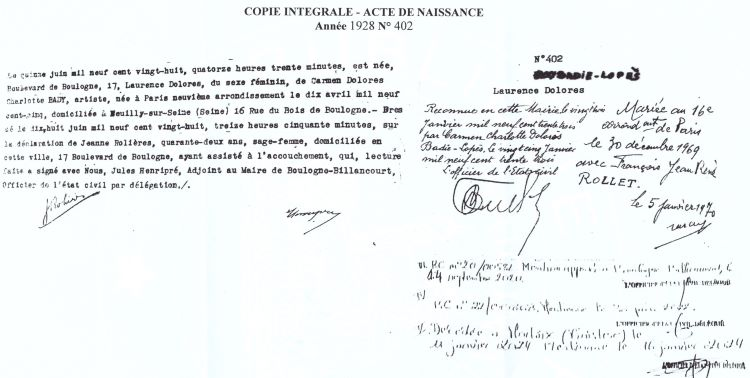 COPIE INTEGRALE - ACTE DE NAISSANCE
Année 1928 N° 402
Le quinze juin mil neuf cent vingt-huit, quatorze heures trente minutes, est née,
Boulevard de Boulogne, 17, Laurence Dolores, du sexe féminin, de Carmen Dolores
Charlotte BADY, artiste, née à Paris neuvième arrondissement le dix avril mil neuf
cent-cinq, domiciliée à Neuilly-sur-Seine (Seine) 16 Rue du Bois de Boulogne.- Dres
sé le dix,huit juin mil neuf cent vingt-huit, treize heures cinquante minutes, sur
la déclaration de Jeanne Rolières, quarante-deux ans, sage-femme, domiciliée en
cette ville, 17 Boulevard de Boulogne, ayant assisté à l'accouchement, qui, lecture
faite a signé avec Nous, Jules Henripré, Adjoint au Maire de Boulogne-Billancourt,
Officier de l'état civil par délégation./.
N°402
Laurence Dolores
Reconnue en cette Mairie le vingt trois
janvier mil neuf cent trente trois
par Carmen Charlotte Dolorès
Badie-Lopès, le vingt cinq Janvier
mil neuf cent trente trois
L'officier de l'Etat civil
Mariée au 16e
arrond. de Paris
le 30 décembre 1969
avec François Jean René
ROLLET.
le 5 janvier 1970
septembre 2020
L'OFFICIER
Décédée à
janvier 2024
janvier 2024